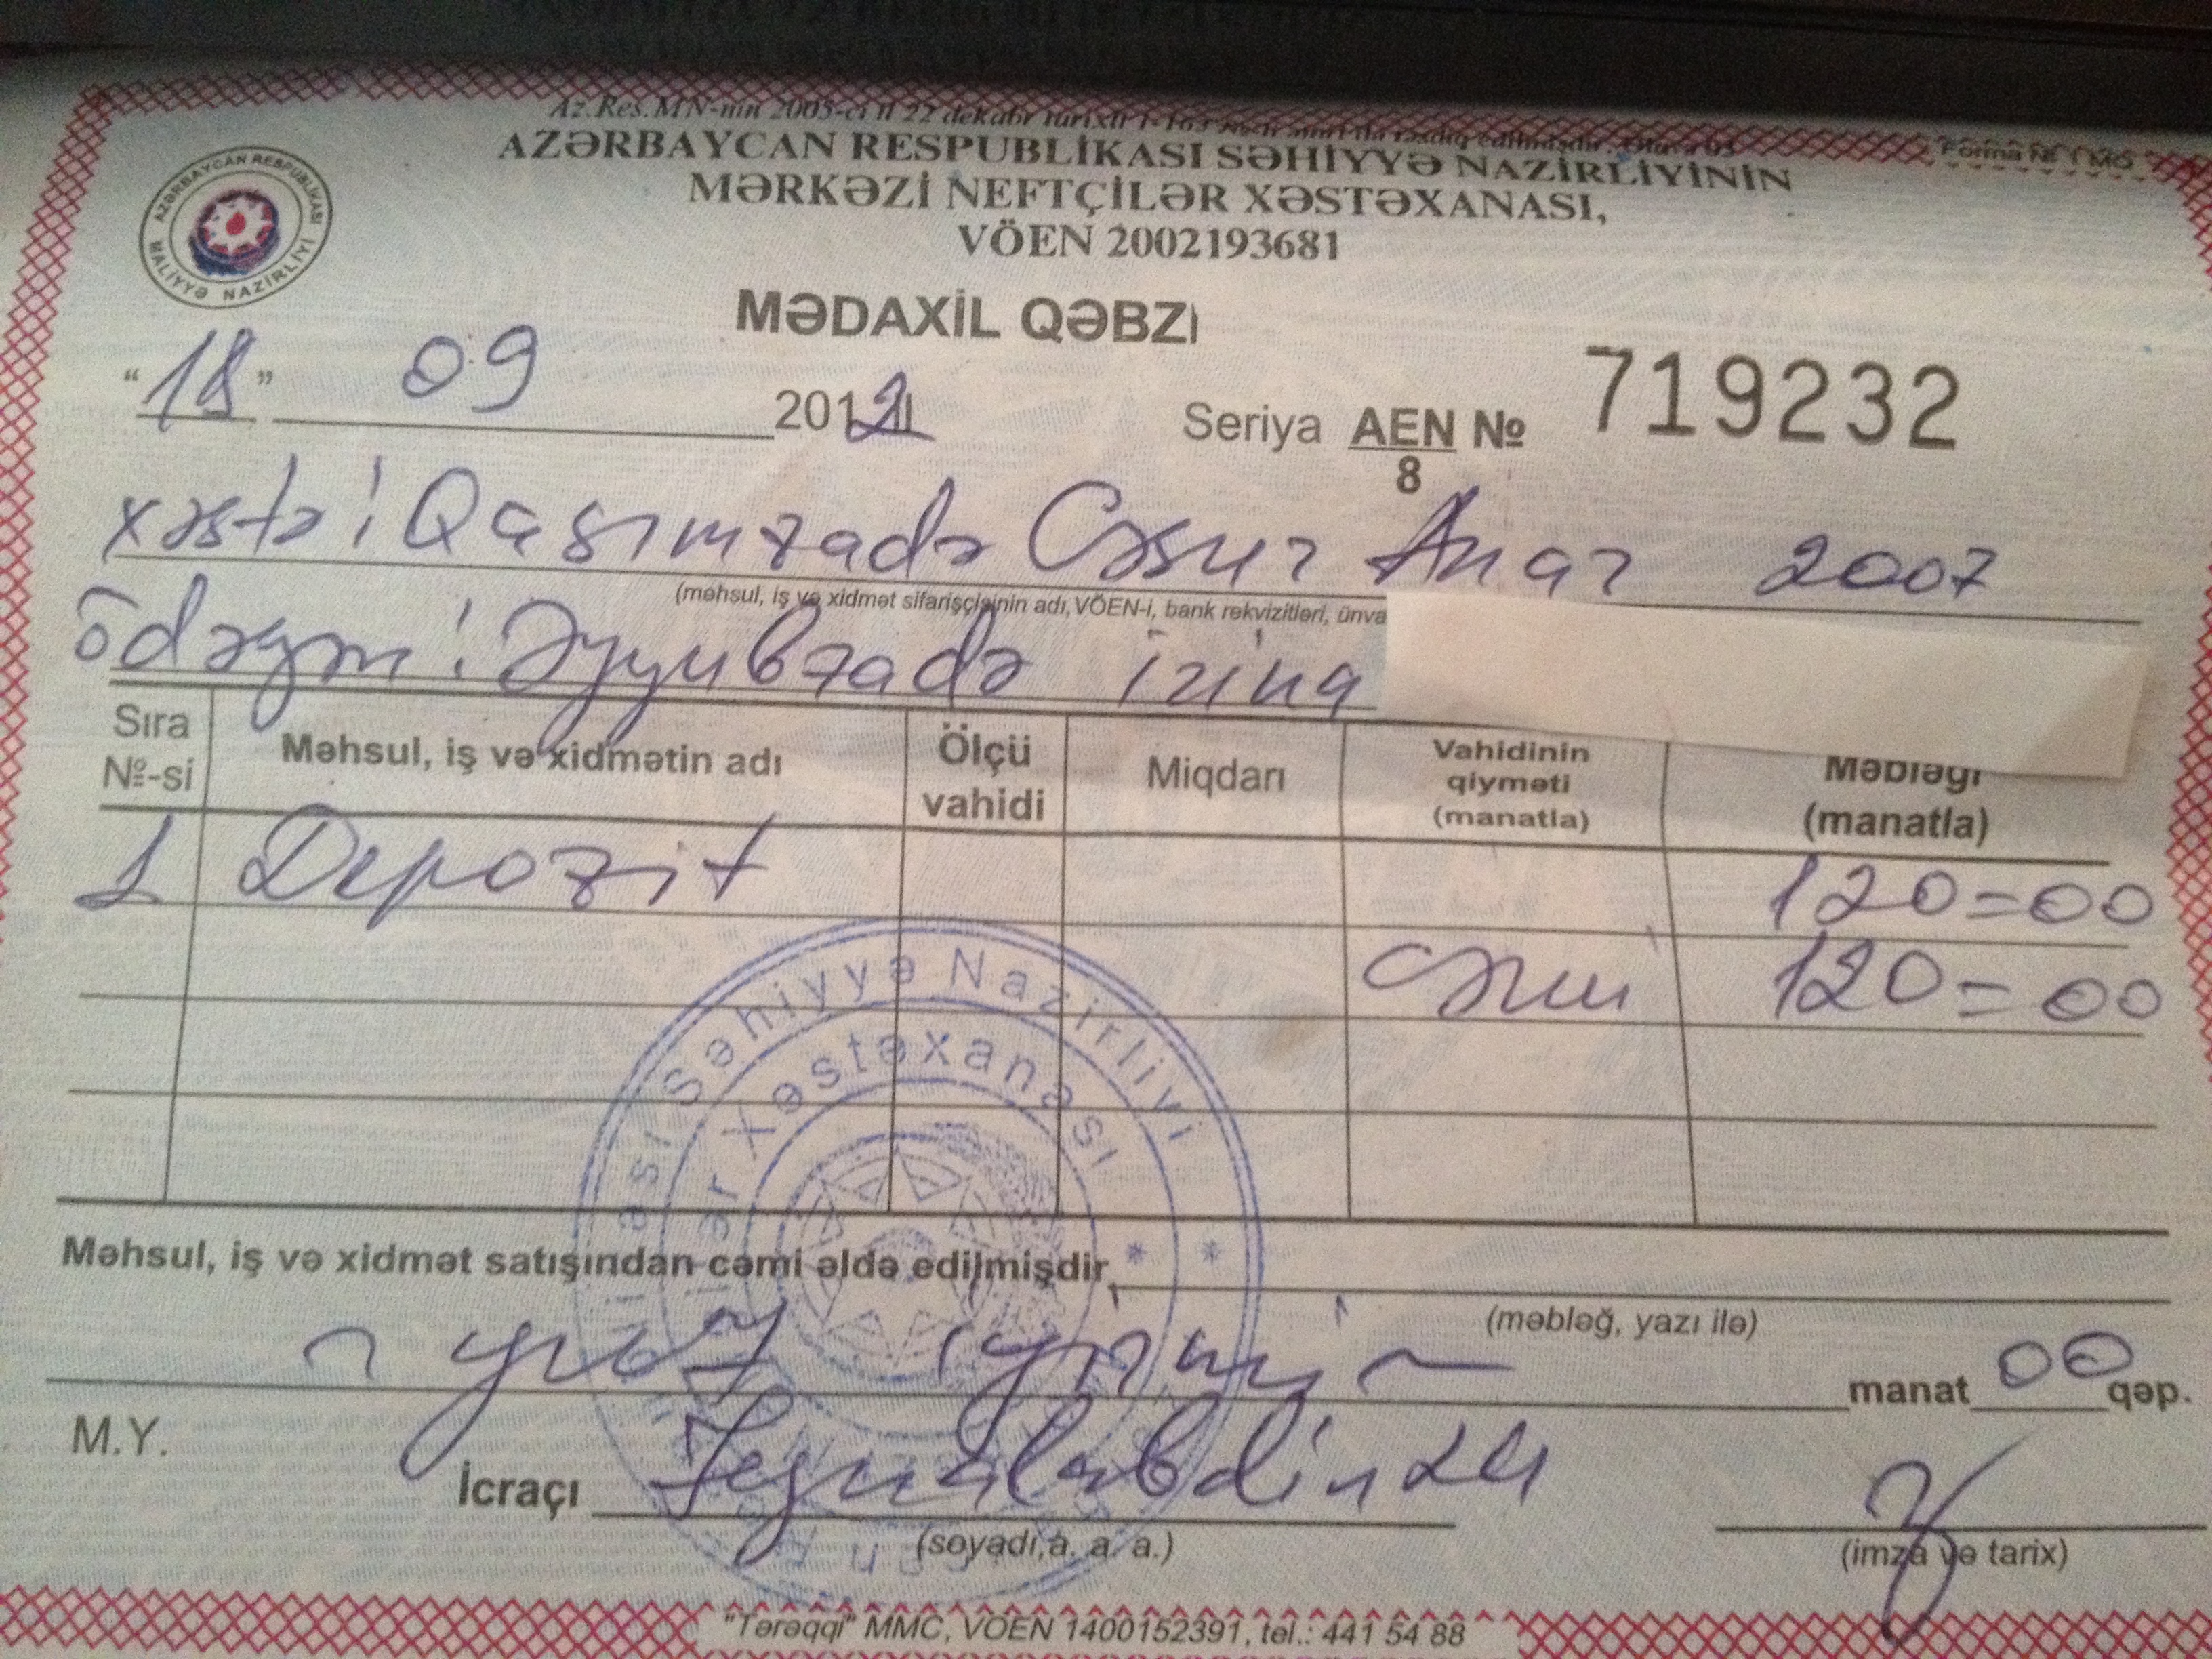 Az. Res. MN-nin 2005-ci il 22 dekabr tarixli
Forma № 1 MQ
AZƏRBAYCAN RESPUBLİKASI SƏHİYYƏ NAZİRLİYİNİN
MƏRKƏZİ NEFTÇİLƏR XƏSTƏXANASI,
VÖEN 2002193681
AZƏRBAYCAN RESPUBLİKASI
MALİYYƏ NAZİRLİYİ
MƏDAXİL QƏBZI
"18" 09 2012
Seriya AEN/8 № 719232
xəstə: Qasımzadə Cəsur Anar 2007
(məhsul, iş və xidmət sifarişçisinin adı, VÖEN-i, bank rekvizitləri, ünva
ödəyən: Əyyubzadə İrina
Sıra №-si Məhsul, iş və xidmətin adı Ölçü vahidi Miqdarı Vahidinin qiyməti (manatla) Məbləği (manatla)
1 Depozit 120=00
Cəmi 120=00
Səhiyyə Nazirliyi
Xəstəxanası
Məhsul, iş və xidmət satışından cəmi əldə edilmişdir
(məbləğ, yazı ilə)
yüz iyirmi manat 00 qəp.
M.Y.
İcraçı
(soyadı, a. a. a.)
(imza və tarix)
"Tərəqqi" MMC, VÖEN 1400152391, tel.: 441 54 88